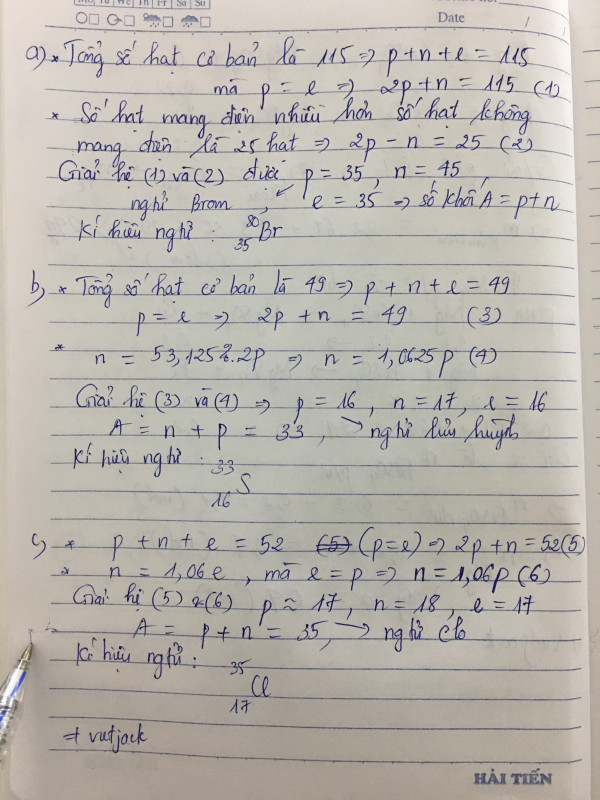 Mo Tu We Th Fr Sa Su
Date / /
a) * Tổng số hạt cơ bản là 115 => p+n+e = 115
mà p = e => 2p+n = 115 (1)
* Số hạt mang điện nhiều hơn số hạt không
mang điện là 25 hạt => 2p - n = 25 (2)
Giải hệ (1) và (2) được p = 35, n = 45,
ngtử Brom, e = 35 => số khối A = p+n
Kí hiệu ngtử : ⁸⁰₃₅Br
b) * Tổng số hạt cơ bản là 49 => p + n + e = 49
p = e => 2p + n = 49 (3)
* n = 53,125%.2p => n = 1,0625p (4)
Giải hệ (3) và (4) => p = 16, n = 17, e = 16
A = n + p = 33, → ngtử lưu huỳnh
Kí hiệu ngtử : ³³₁₆S
c) * p + n + e = 52 (5) (p=e) => 2p+n = 52 (5)
* n = 1,06e, mà e = p => n = 1,06p (6)
Giải hệ (5) & (6) p ≈ 17, n = 18, e = 17
A = p + n = 35, → ngtử clo
Kí hiệu ngtử : ³⁵₁₇Cl
=> vutjack
HẢI TIẾN